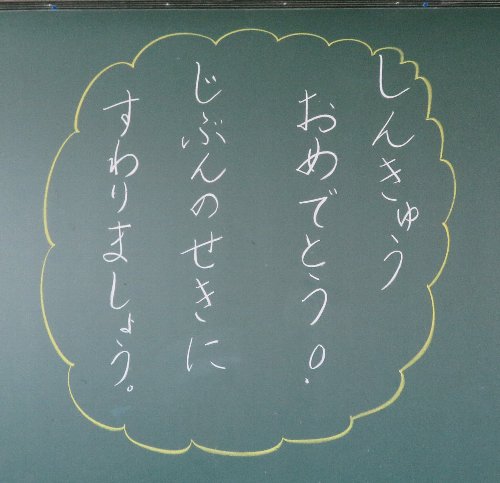 しんきゅう
おめでとう!
じぶんのせきに
すわりましょう。